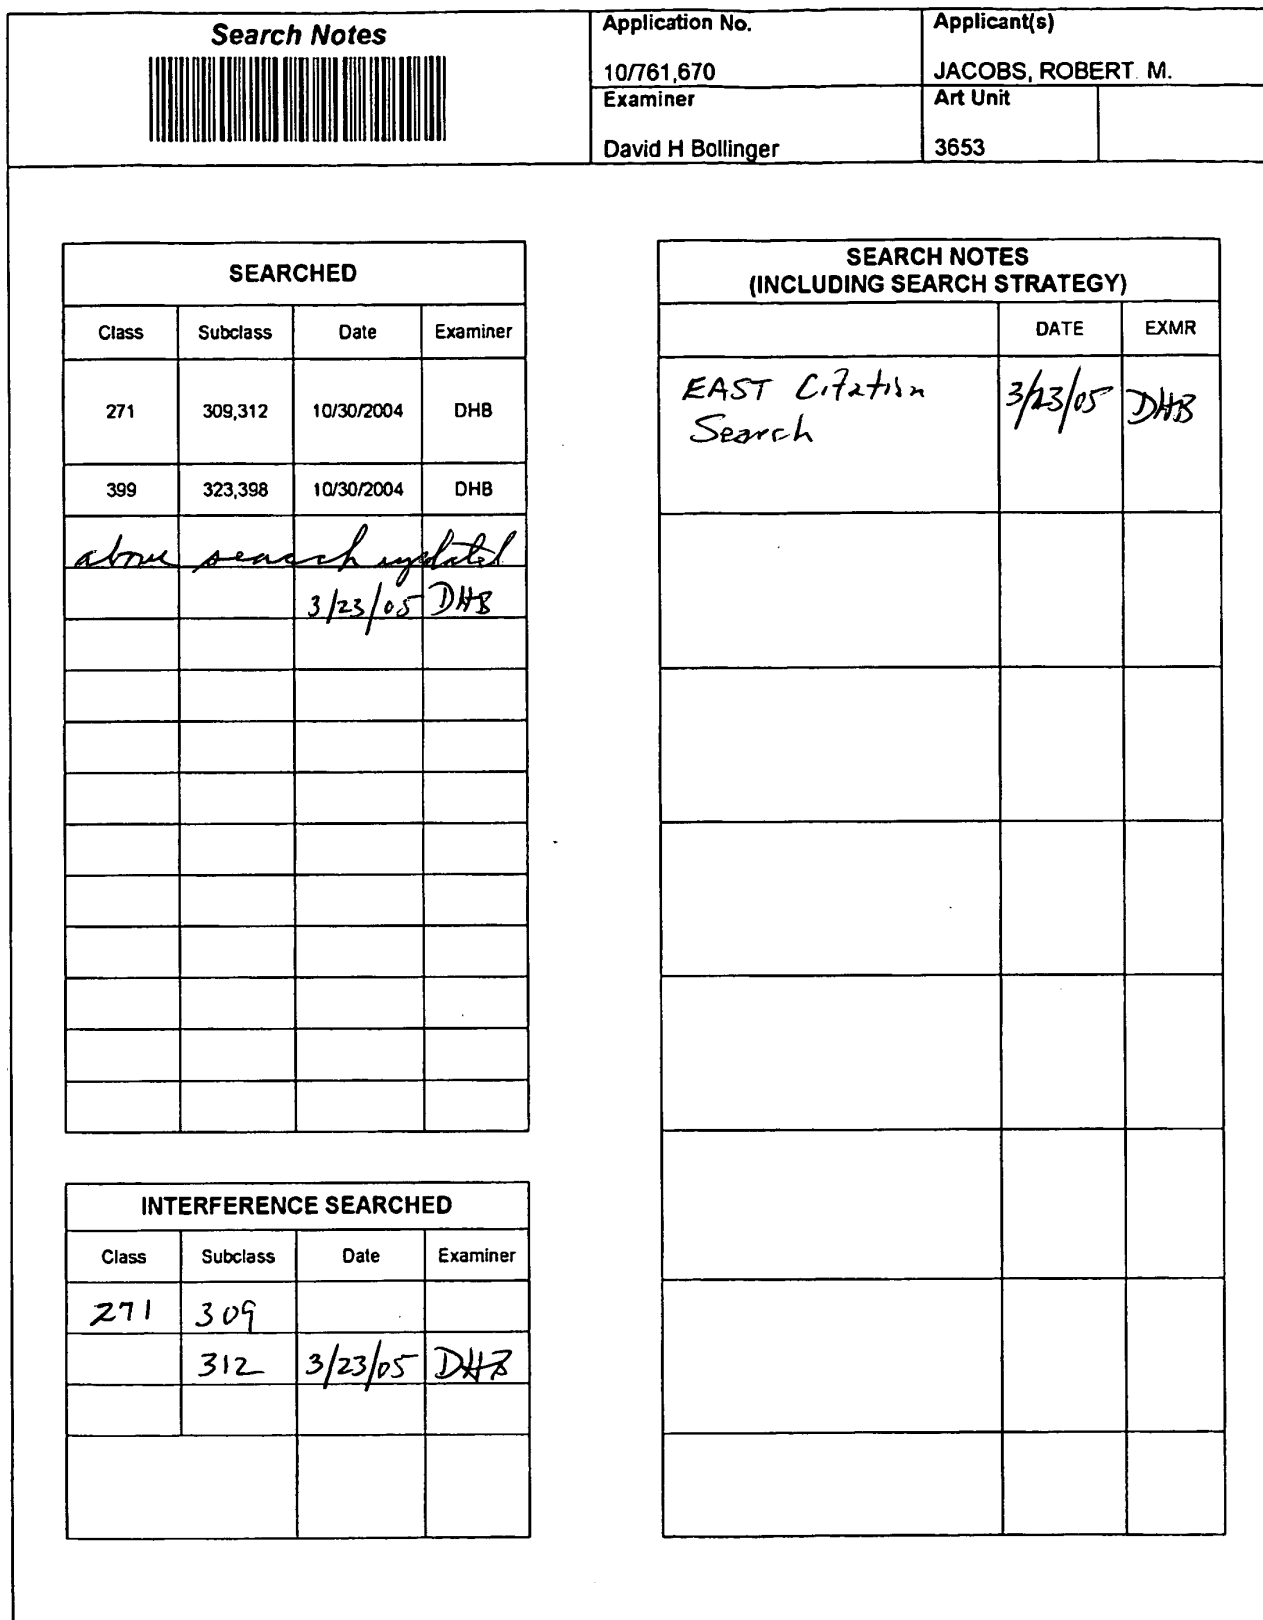 Search Notes
Application No.
10/761,670
Applicant(s)
JACOBS, ROBERT M.
Examiner
David H Bollinger
Art Unit
3653
SEARCHED
Class Subclass Date Examiner
271 309,312 10/30/2004 DHB
399 323,398 10/30/2004 DHB
above search updated
3/23/05 DHB
INTERFERENCE SEARCHED
Class Subclass Date Examiner
271 309
312 3/23/05 DHB
SEARCH NOTES
(INCLUDING SEARCH STRATEGY)
DATE EXMR
EAST Citation 3/23/05 DHB
Search